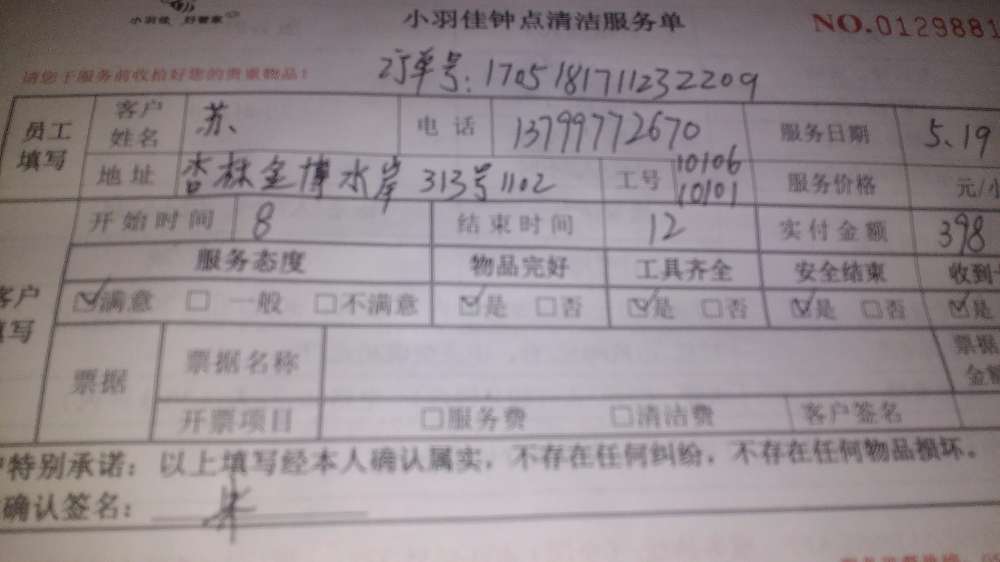 小羽佳 好管家
小羽佳钟点清洁服务单
NO.0129881
请您于服务前收拾好您的贵重物品！
订单号：170518171123 2209
员工填写
客户姓名 苏、 电话 13799772670 服务日期 5.19
地址 杏林金博水岸 313号1102 工号 10106 10101 服务价格 元/小
开始时间 8 结束时间 12 实付金额 398
客户填写
服务态度 物品完好 工具齐全 安全结束 收到
☑满意 □一般 □不满意 ☑是 □否 ☑是 □否 ☑是 □否 ☑是
票据 票据名称 票据金额
开票项目 □服务费 □清洁费 客户签名
特别承诺：以上填写经本人确认属实，不存在任何纠纷，不存在任何物品损坏。
确认签名：